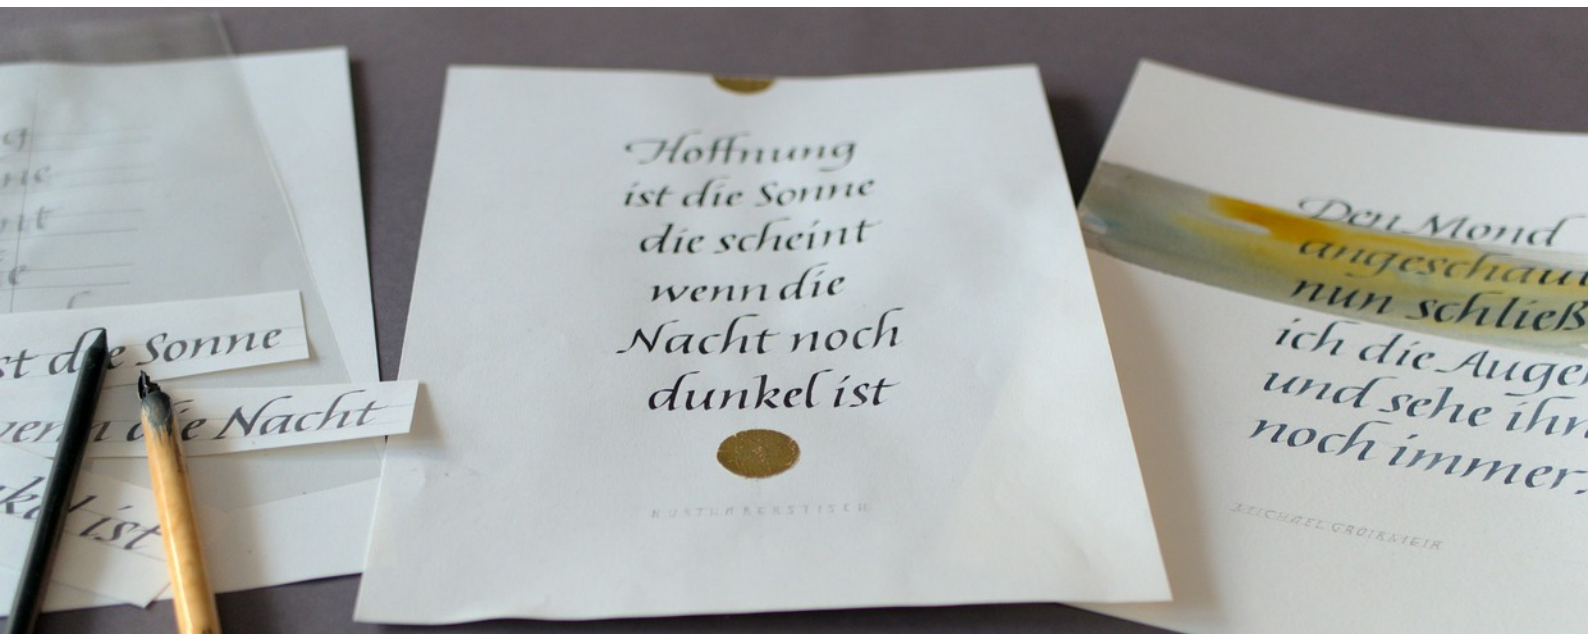 g
ne
nt
e
st die Sonne
wenn die Nacht
ist
Hoffnung
ist die Sonne
die scheint
wenn die
Nacht noch
dunkel ist
Den Mond
angeschaut
nun schließ
ich die Augen
und sehe ihn
noch immer.
MICHAEL GROISSMEIR